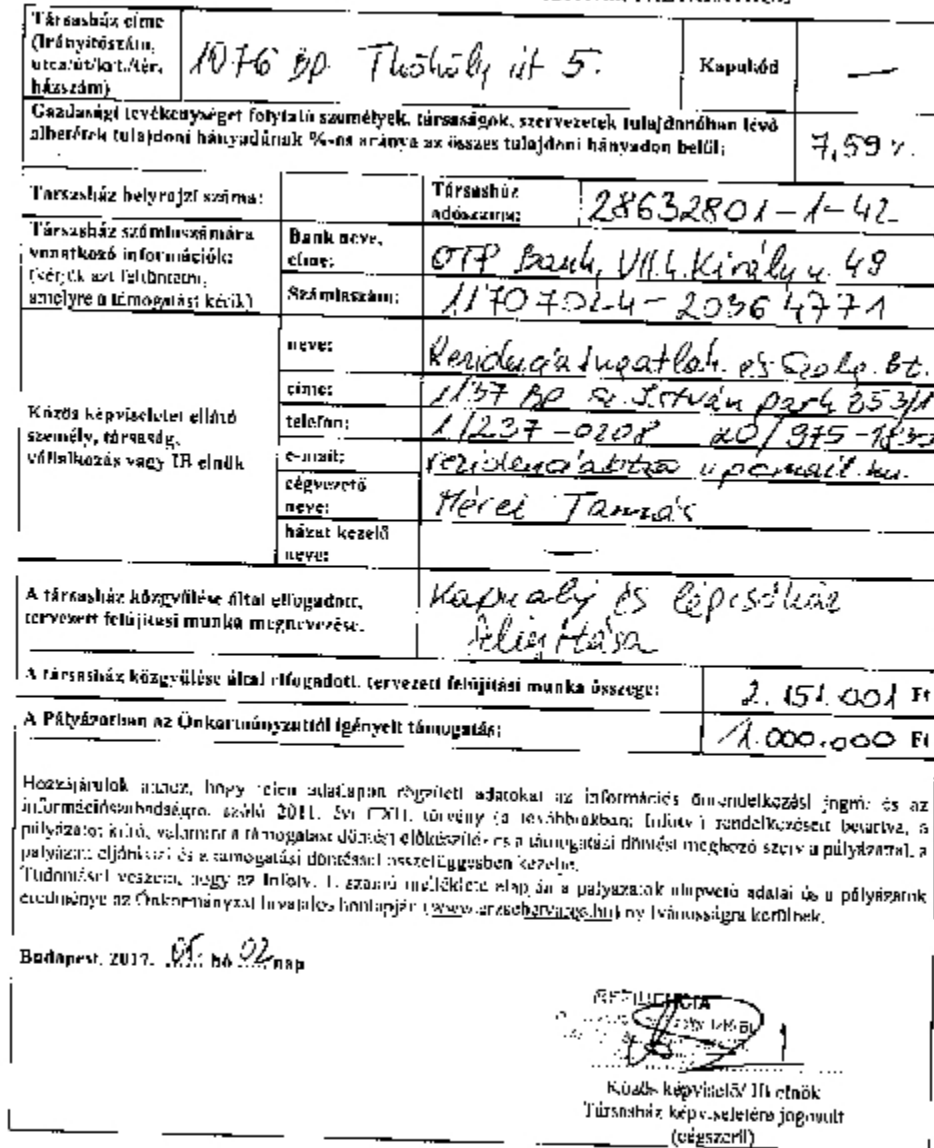 Társasház címe
(Irányítószám,
utca/út/krt./tér,
házszám)
1076 Bp. Thököly út 5.
Kapukód
—
Gazdasági tevékenységet folytató személyek, társaságok, szervezetek tulajdonában lévő
albetétek tulajdoni hányadának %-os aránya az összes tulajdoni hányadon belül:
7,59 %.
Társasház helyrajzi száma:
Társasház
adószáma:
28632801-1-42
Társasház számlaszámára
vonatkozó információk:
(kérjük azt feltüntetni,
amelyre a támogatást kérik)
Bank neve,
címe:
OTP Bank, VII.k. Király u. 49
Számlaszám:
11707024-20364771
Közös képviseletet ellátó
személy, társaság,
vállalkozás vagy IB elnök
neve:
Rezidencia Ingatlan. és Szolg. Bt.
címe:
1137 Bp Sz. István park
telefon:
1/237-0208
e-mail:
upcmail.hu
cégvezető
neve:
Mérei Tamás
házat kezelő
neve:
—
A társasház közgyűlése által elfogadott,
tervezett felújítási munka megnevezése.
Kapualj és lépcsőház
felújítása
A társasház közgyűlése által elfogadott, tervezett felújítási munka összege:
2.151.001 Ft
A Pályázatban az Önkormányzattól igényelt támogatás:
1.000.000 Ft
Hozzájárulok ahhoz, hogy jelen adatlapon rögzített adatokat az információs önrendelkezési jogról és az
információszabadságról szóló 2011. évi CXII. törvény (a továbbiakban: Infotv.) rendelkezéseit betartva, a
pályázatot kiíró, valamint a támogatási döntést előkészítő és a támogatási döntést meghozó szerv a pályázattal, a
pályázati eljárással és a támogatási döntéssel összefüggésben kezelje.
Tudomásul veszem, hogy az Infotv. 1. számú melléklete alapján a pályázatok alapvető adatai és a pályázatok
eredménye az Önkormányzat hivatalos honlapján (www.erzsebetvaros.hu) nyilvánosságra kerülnek.
Budapest, 2017. 05. hó 02. nap
REZIDENCIA
Közös képviselő/ IB elnök
Társasház képviseletére jogosult
(cégszerű)